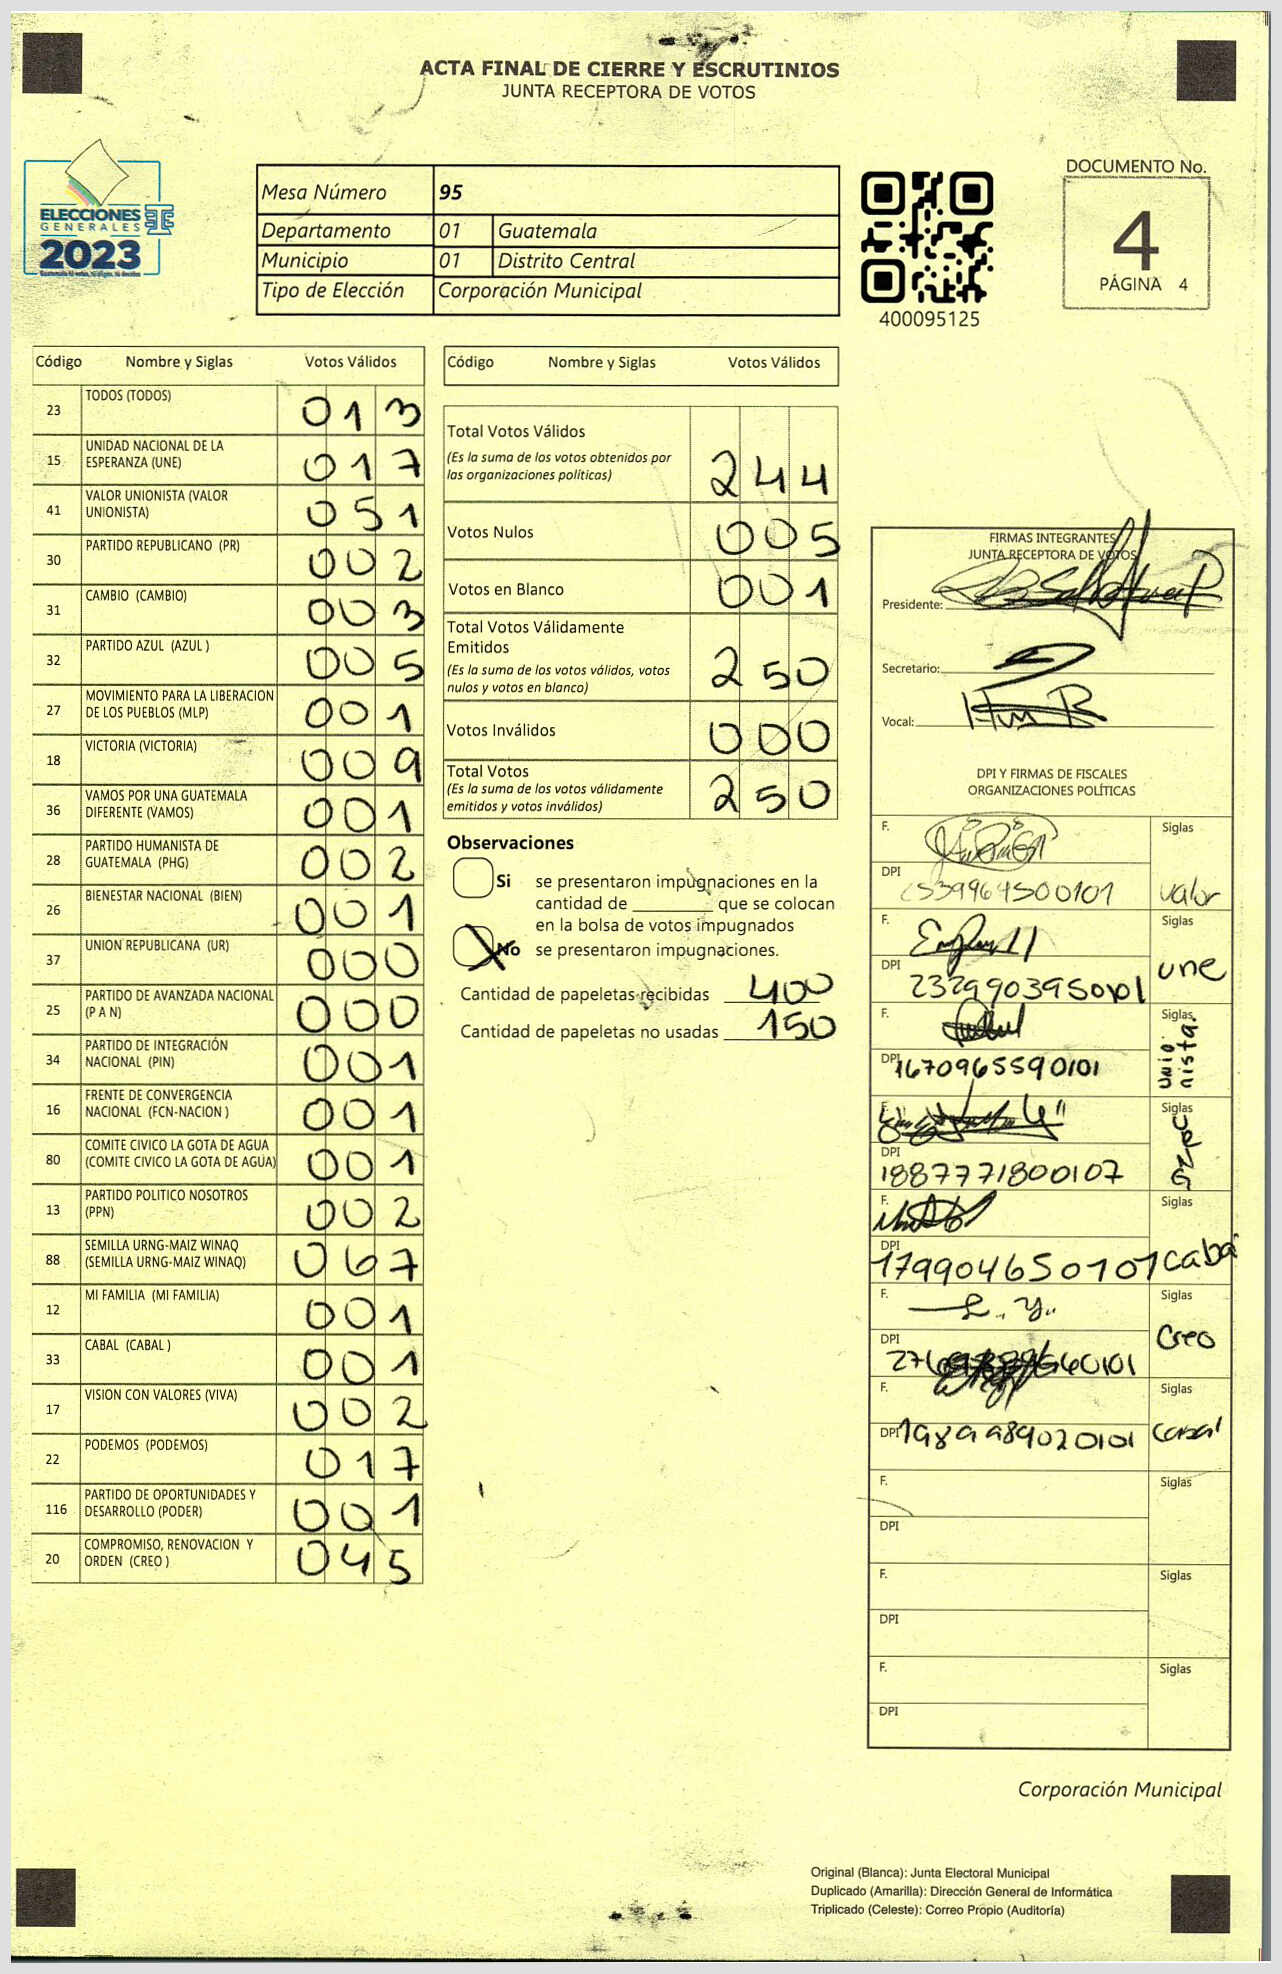 ACTA FINAL DE CIERRE Y ESCRUTINIOS
JUNTA RECEPTORA DE VOTOS
ELECCIONES
GENERALES
2023
Mesa Número 95
Departamento 01 Guatemala
Municipio 01 Distrito Central
Tipo de Elección Corporación Municipal
400095125
DOCUMENTO No.
4
PÁGINA 4
Código Nombre y Siglas Votos Válidos
23 TODOS (TODOS) 013
15 UNIDAD NACIONAL DE LA ESPERANZA (UNE) 017
41 VALOR UNIONISTA (VALOR UNIONISTA) 051
30 PARTIDO REPUBLICANO (PR) 002
31 CAMBIO (CAMBIO) 003
32 PARTIDO AZUL (AZUL ) 005
27 MOVIMIENTO PARA LA LIBERACION DE LOS PUEBLOS (MLP) 001
18 VICTORIA (VICTORIA) 009
36 VAMOS POR UNA GUATEMALA DIFERENTE (VAMOS) 001
28 PARTIDO HUMANISTA DE GUATEMALA (PHG) 002
26 BIENESTAR NACIONAL (BIEN) 001
37 UNION REPUBLICANA (UR) 000
25 PARTIDO DE AVANZADA NACIONAL (P A N) 000
34 PARTIDO DE INTEGRACIÓN NACIONAL (PIN) 001
16 FRENTE DE CONVERGENCIA NACIONAL (FCN-NACION ) 001
80 COMITE CIVICO LA GOTA DE AGUA (COMITE CIVICO LA GOTA DE AGUA) 001
13 PARTIDO POLITICO NOSOTROS (PPN) 002
88 SEMILLA URNG-MAIZ WINAQ (SEMILLA URNG-MAIZ WINAQ) 067
12 MI FAMILIA (MI FAMILIA) 001
33 CABAL (CABAL ) 001
17 VISION CON VALORES (VIVA) 002
22 PODEMOS (PODEMOS) 017
116 PARTIDO DE OPORTUNIDADES Y DESARROLLO (PODER) 001
20 COMPROMISO, RENOVACION Y ORDEN (CREO ) 045
Código Nombre y Siglas Votos Válidos
Total Votos Válidos 244
(Es la suma de los votos obtenidos por
las organizaciones políticas)
Votos Nulos 005
Votos en Blanco 001
Total Votos Válidamente
Emitidos 250
(Es la suma de los votos válidos, votos
nulos y votos en blanco)
Votos Inválidos 000
Total Votos 250
(Es la suma de los votos válidamente
emitidos y votos inválidos)
Observaciones
Si se presentaron impugnaciones en la
cantidad de ________ que se colocan
en la bolsa de votos impugnados
No se presentaron impugnaciones.
Cantidad de papeletas recibidas 400
Cantidad de papeletas no usadas 150
FIRMAS INTEGRANTES
JUNTA RECEPTORA DE VOTOS
Presidente:
Secretario:
Vocal:
DPI Y FIRMAS DE FISCALES
ORGANIZACIONES POLÍTICAS
F. Siglas
DPI valor
F. Siglas
DPI 2329903950101 une
F. Siglas
DPI 1670965590101 unionista.
F. Siglas
DPI 1887771800107
F. Siglas
DPI 179904650101 cabal
F. Siglas
DPI Creo
F. Siglas
DPI cabal
F. Siglas
DPI
F. Siglas
DPI
F. Siglas
DPI
Corporación Municipal
Original (Blanca): Junta Electoral Municipal
Duplicado (Amarilla): Dirección General de Informática
Triplicado (Celeste): Correo Propio (Auditoría)